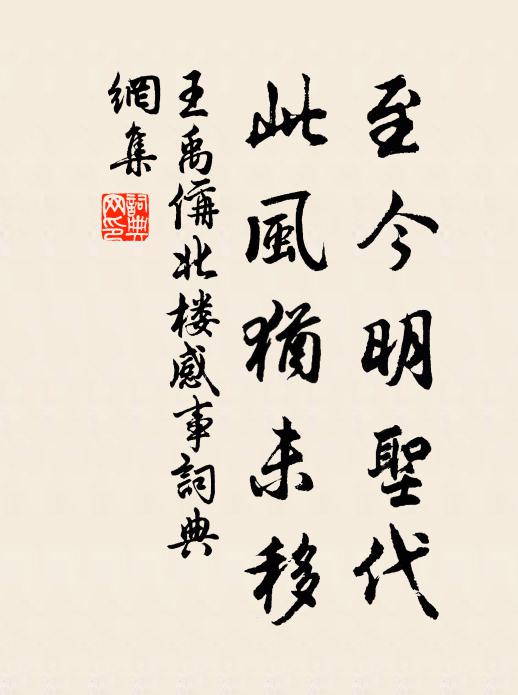 至今明聖代
此風猶未移
王禹偁北楼感事詞典
網集
詞典
网印